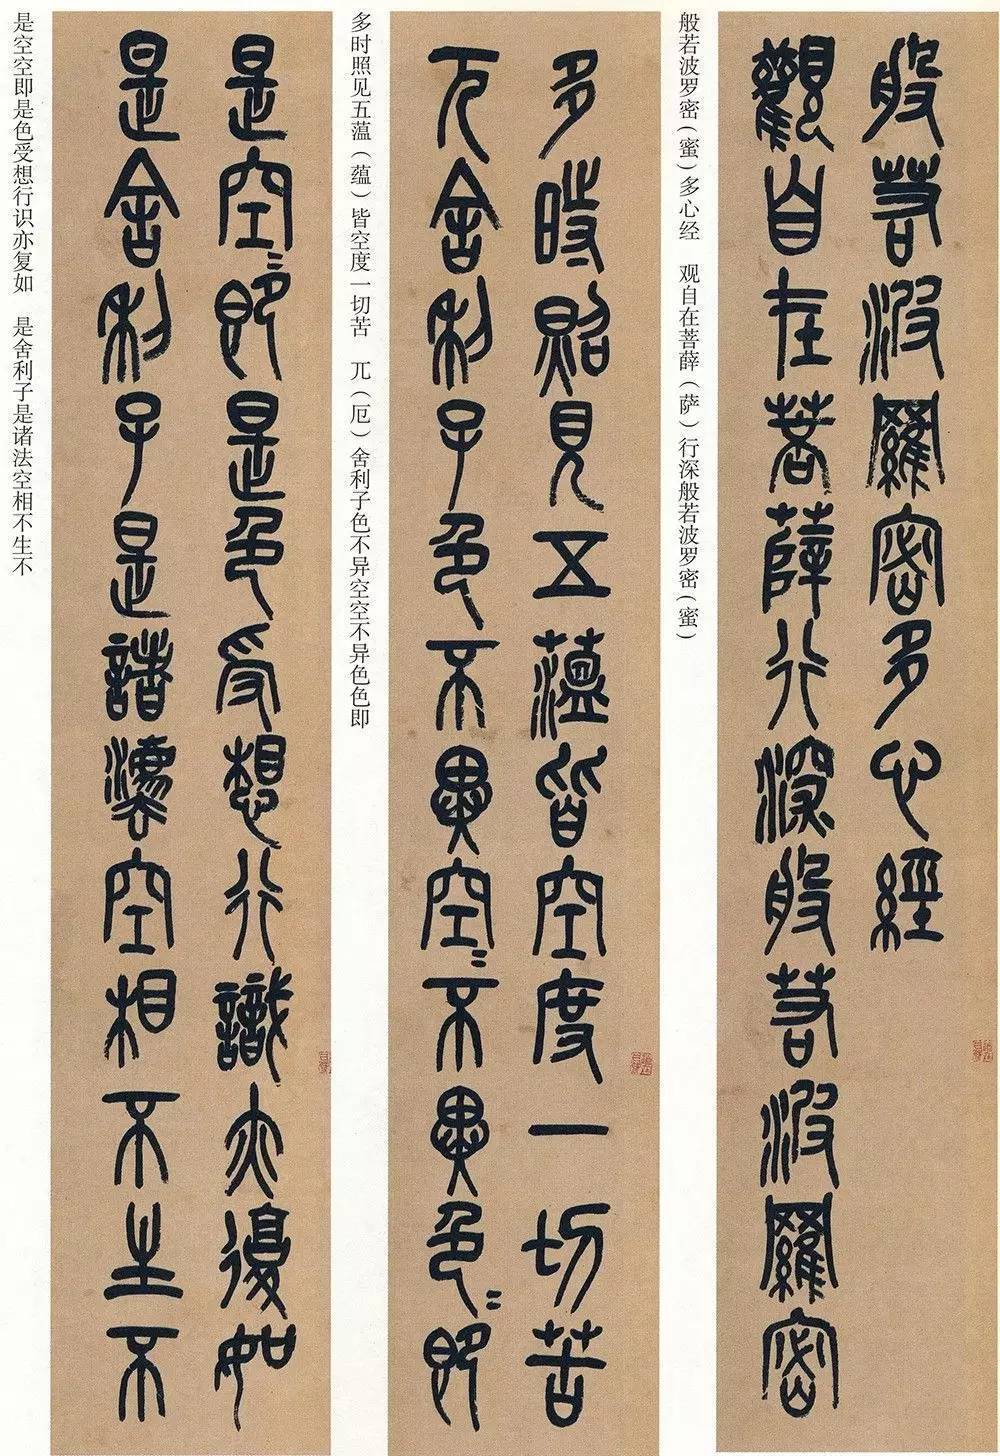 般若波羅密多心經
觀自在菩薛行深般若波羅密
般若波罗密（蜜）多心经　观自在菩薛（萨）行深般若波罗密（蜜）
多時照見五薀皆空度一切苦
兀舍利子色不異空〻不異色〻即
多时照见五薀（蕴）皆空度一切苦　兀（厄）舍利子色不异空空不异色色即
是空〻即是色受想行識亦復如
是舍利子是諸灋空相不生不
是空空即是色受想行识亦复如　是舍利子是诸法空相不生不